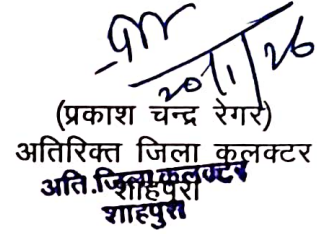 20/1/26
(प्रकाश चन्द्र रेगर)
अतिरिक्त जिला कलक्टर
शाहपुरा
अति.जिला कलक्टर
शाहपुरा